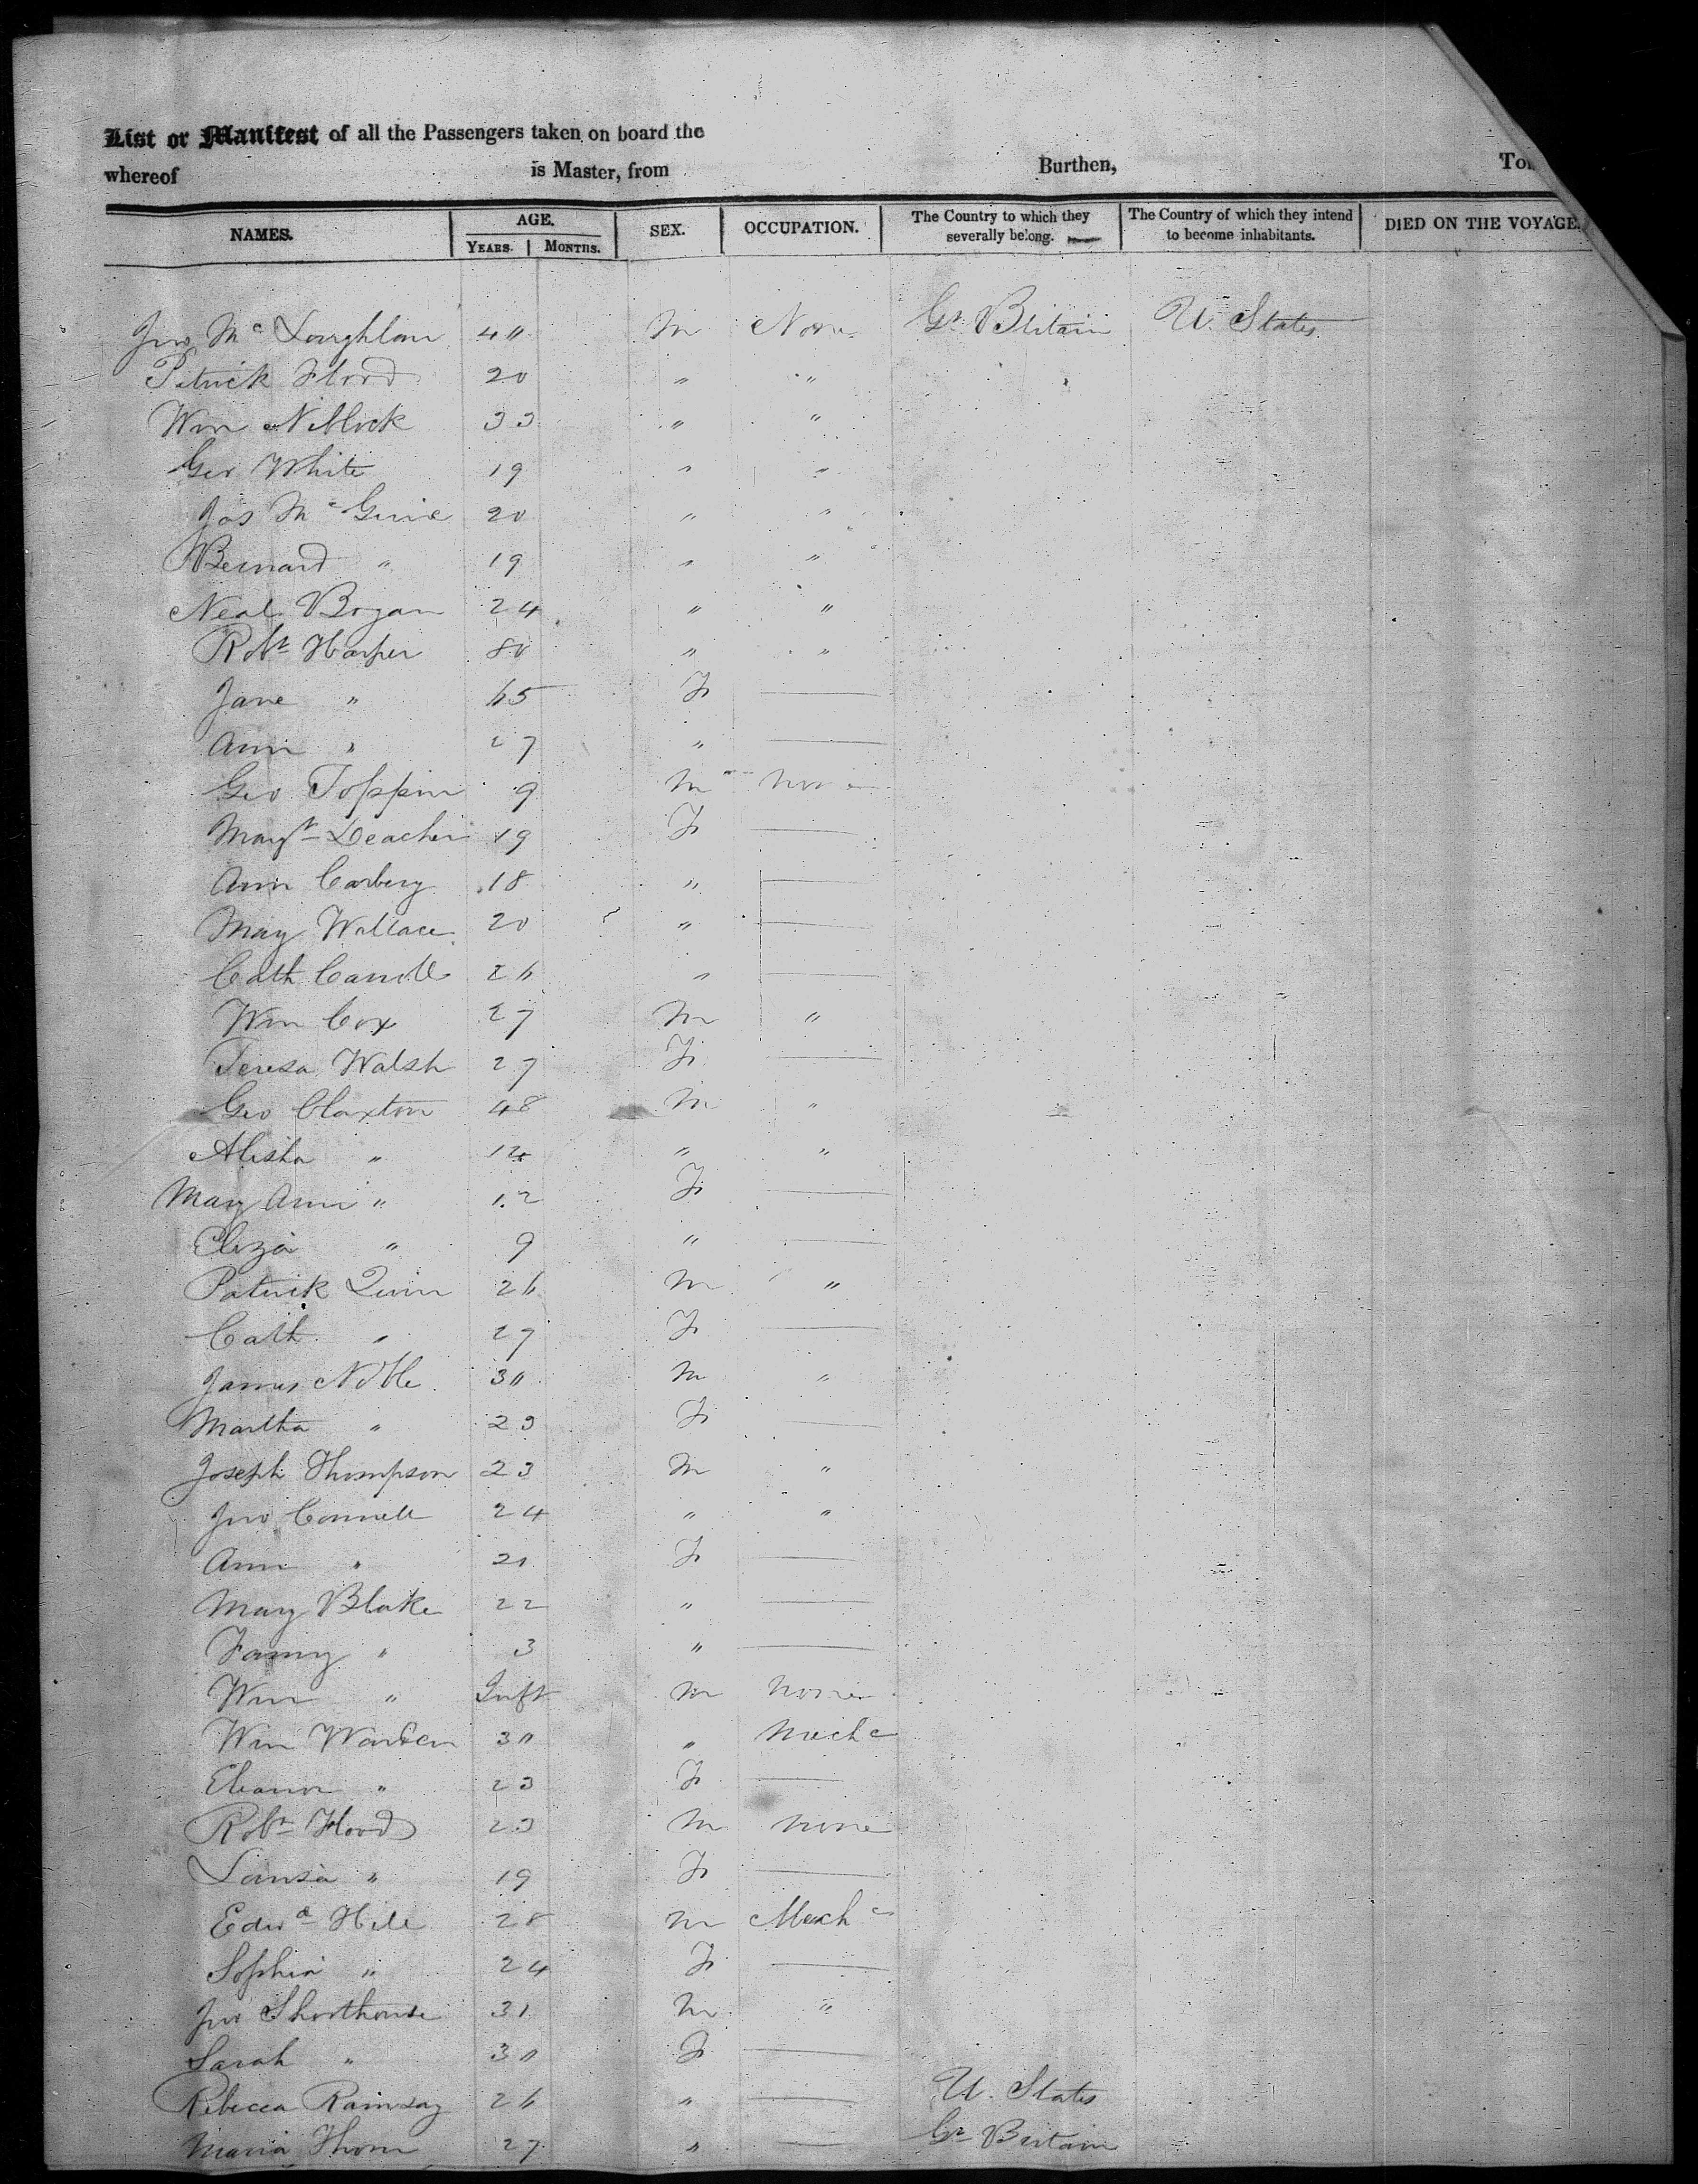 List or Manifest of all the Passengers taken on board the
whereof is Master, from Burthen, Ton
NAMES. AGE. YEARS. MONTHS. SEX. OCCUPATION. The Country to which they severally belong. The Country of which they intend to become inhabitants. DIED ON THE VOYAGE.
Jno Mc Loughlan 40 M None Gt Britain U. States
Patrick Flood 20 " "
Wm Niblock 33 " "
Geo White 19 " "
Jas Mc Guire 20 " "
Bernard " 19 " "
Neal Bogan 24 " "
Robt Harper 80 " "
Jane " 65 F —
Ann " 27 " —
Geo Toppin 9 M none
Margt Deacher 19 F —
Ann Carbery 18 " —
Mary Wallace 20 " —
Cath Carroll 26 " —
Wm Cox 27 M "
Teresa Walsh 27 F —
Geo Claxton 48 M "
Alisha " 14 " "
Mary Ann " 12 F —
Eliza " 9 " —
Patrick Quinn 26 M "
Cath " 27 F —
James Noble 30 M "
Martha " 23 F —
Joseph Thompson 23 M "
Jno Connell 24 " "
Ann " 21 F —
Mary Blake 22 " —
Fanny " 3 " —
Wm " Inft M none
Wm 30 " Mechc
Eleanor " 23 F —
Robt Hood 23 M none
Louisa " 19 F —
Edwd Hill 28 M Mechc
Sophia " 24 F —
Jno Shorthouse 31 M "
Sarah " 30 F —
Rebecca Ramsay 26 " — U. States
Maria Thorn 27 " — Gt Britain